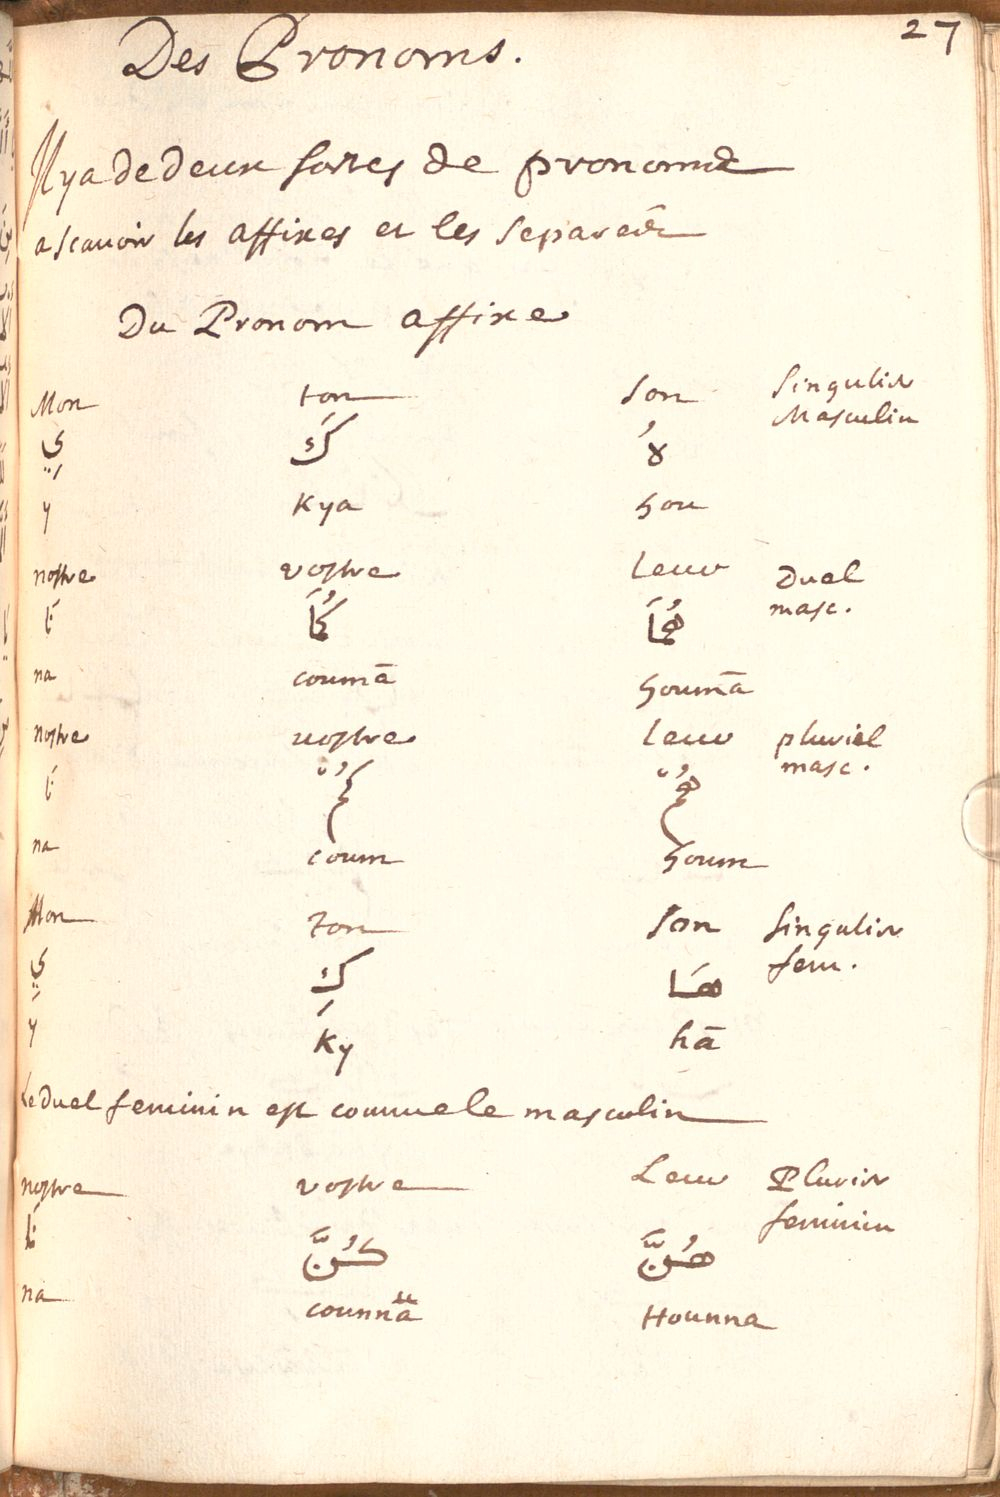 27
Des Pronoms.
Il y a de deux sortes de pronoms
a scauoir les affixes et les separés
Du Pronom affixe
Mon ton son Singulier
Masculin
ي كَ هُ
y Kya hou
nostre vostre leur Duel
masc.
نَا كُمَا هُمَا
na coumā houmā
nostre vostre leur pluriel
masc.
نَا كُمْ هُمْ
na coum houm
Mon ton son singulier
fem.
ي كِ هَا
y Ky hā
Le duel feminin est comme le masculin
nostre vostre Leur Pluriel
feminin
نَا كُنَّ هُنَّ
na counnā Hounna